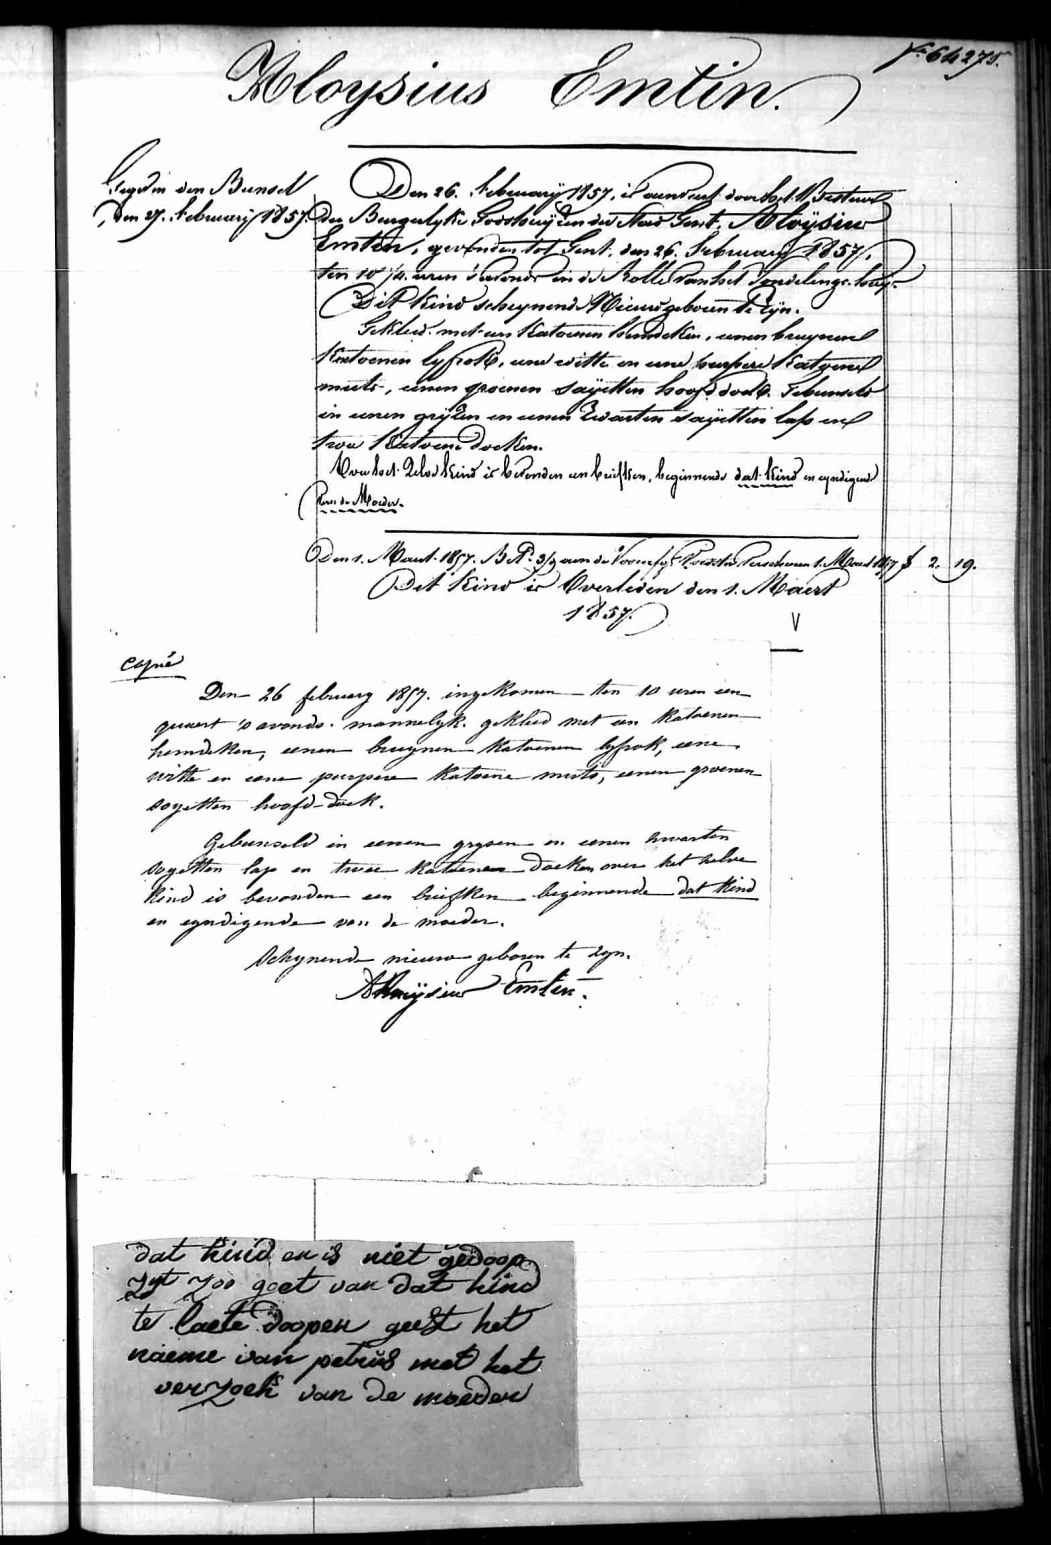 64275.
Aloysius Emtin.
den 27. februarij 1857.
Den 26. februarij 1857, is door het Bestuer
der Burgerlyke Godshuyzen der Stad Gent, Aloÿsius
Emtin, gevonden tot Gent, den 26. februarij 1857,
ten 10 1/4 uren 's avonds in de Rolle van het Vondelings-huys.
Dit kind schynend Nieuwgeboren te zyn.
Gekleed met een Katoenen hemdeken, eenen bruynen
Katoenen lyfrok, eene witte en eene purpere Katoene
muts, eenen groenen sayetten hoofddoek. Gebunseld
in eenen gryzen en eenen zwarten sayetten lap en
twee Katoene doeken.
Over het zelve Kind is bevonden een briefken, beginnende dat kind en eyndigende
van de Moeder.
Den 1. Maert 1857. 1. Maert 1857 f 2. 19.
Dit kind is Overleden den 1. Maert
1857.
copie
Den 26 february 1857. ingekomen ten 10 uren een
quaert 's avonds. mannelyk. gekleed met een katoenen
hemdeken, eenen bruynen katoenen lyfrok, eene
witte en eene purpere katoene muts, eenen groenen
sayetten hoofd-doek.
Gebunseld in eenen grysen en eenen zwarten
sayetten lap en twee katoenen doeken over het zelve
kind is bevonden een briefken beginnende dat kind
en eyndigende van de moeder.
Schynende nieuw geboren te zyn.
Aloÿsius Emtin.
dat kind en is niet gedoop
zyt zoo goet van dat kind
te laete doopen geeft het
naeme van petrus met het
verzoek van de moeder